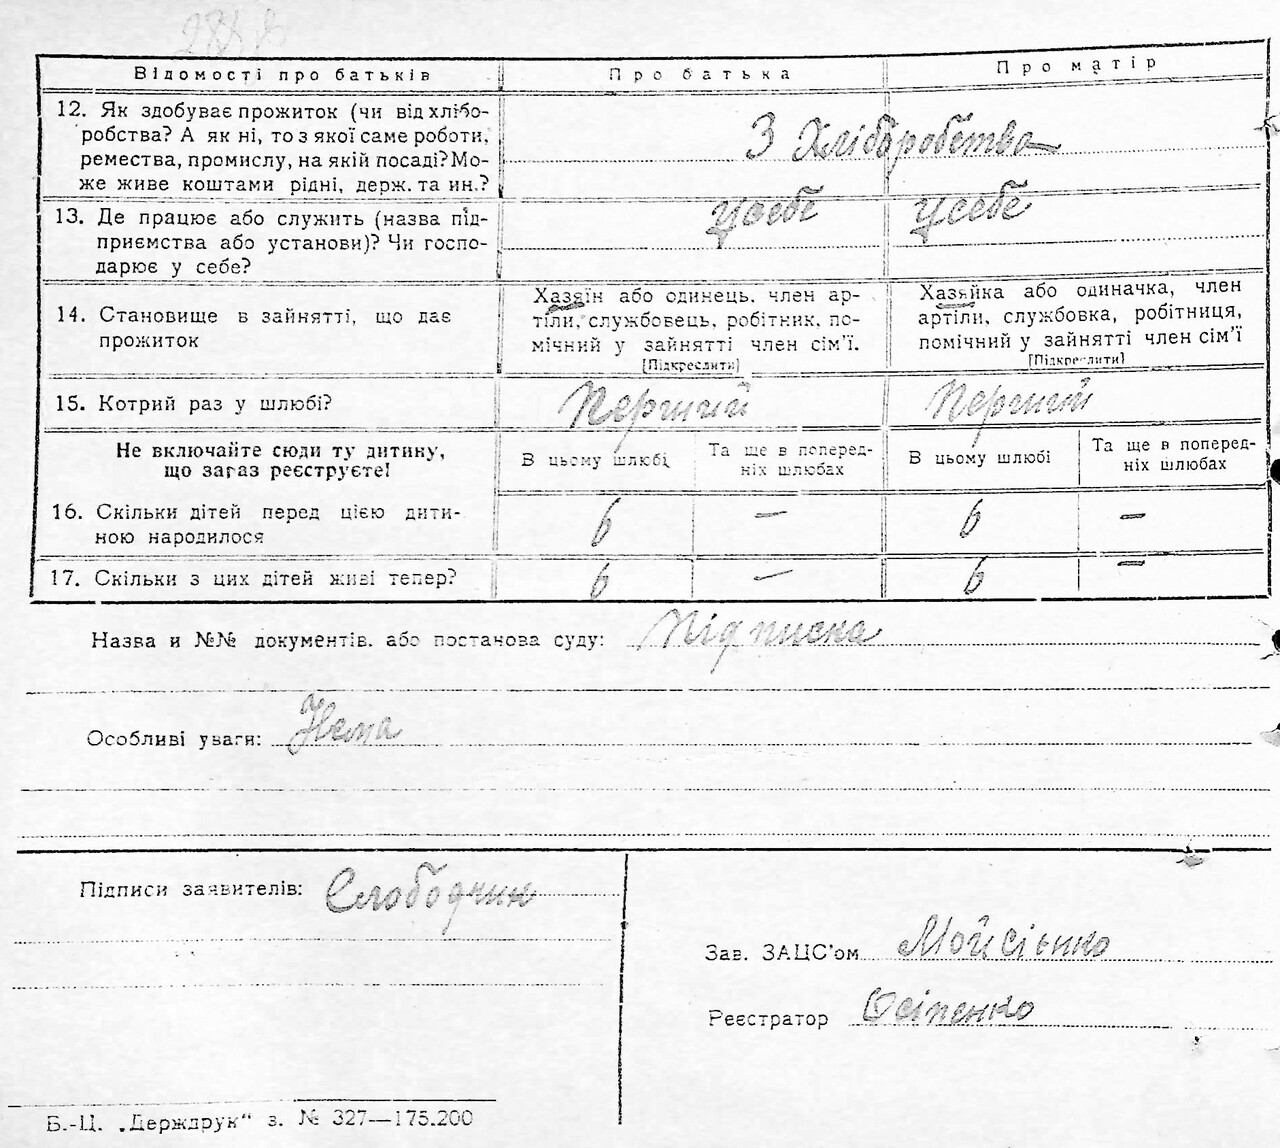 Відомості про батьків Про батька Про матір
12. Як здобуває прожиток (чи від хлібо-
робства? А як ні, то з якої саме роботи,
ремества, промислу, на якій посаді? Мо-
же живе коштами рідні, держ. та ин.?
З Хліборобства
13. Де працює або служить (назва під-
приємства або установи)? Чи госпо-
дарює у себе?
у себе у себе
14. Становище в зайнятті, що дає
прожиток
Хазяїн або одинець, член ар-
тіли, службовець, робітник, по-
мічний у зайнятті член сім'ї.
[Підкреслити]
Хазяйка або одиначка, член
артіли, службовка, робітниця,
помічний у зайнятті член сім'ї
[Підкреслити]
15. Котрий раз у шлюбі? Перший Перший
Не включайте сюди ту дитину,
що загаз реєструєте!
В цьому шлюбі
Та ще в поперед-
ніх шлюбах
В цьому шлюбі
Та ще в поперед-
ніх шлюбах
16. Скільки дітей перед цією дити-
ною народилося
6 — 6 —
17. Скільки з цих дітей живі тепер? 6 — 6 —
Назва и №№ документів. або постанова суду: Підписка
Особливі уваги: Нема
Підписи заявителів: Слободчин
Зав. ЗАЦС'ом Мойсієнко
Реєстратор Осіпенко
Б.-Ц. „Держдрук" з. № 327—175.200